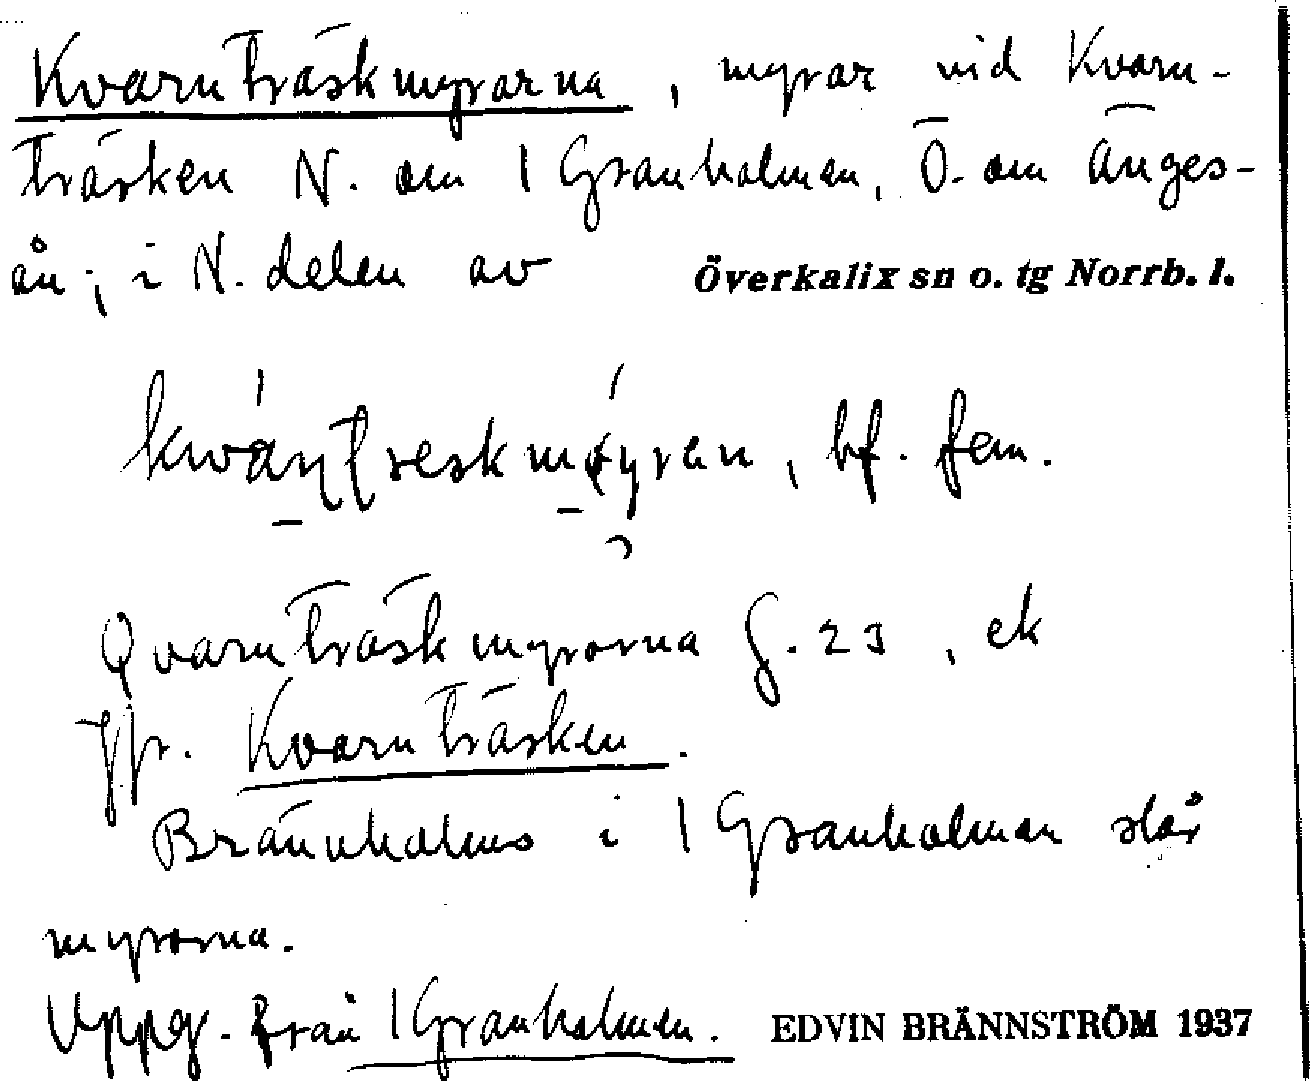 Kvarnträskmyrarna, myrar vid Kvarn-
träsken N. om 1 Granholmen, Ö. om Änges-
ån; i N. delen av Överkalix sn o. tg Norrb. l.
bf. fem.
Qvarnträskmyrorna G. 23, ek
Jfr. Kvarnträsken.
Brännholms i 1 Granholmen slår
myrorna.
Uppg. från 1 Granholmen. EDVIN BRÄNNSTRÖM 1937